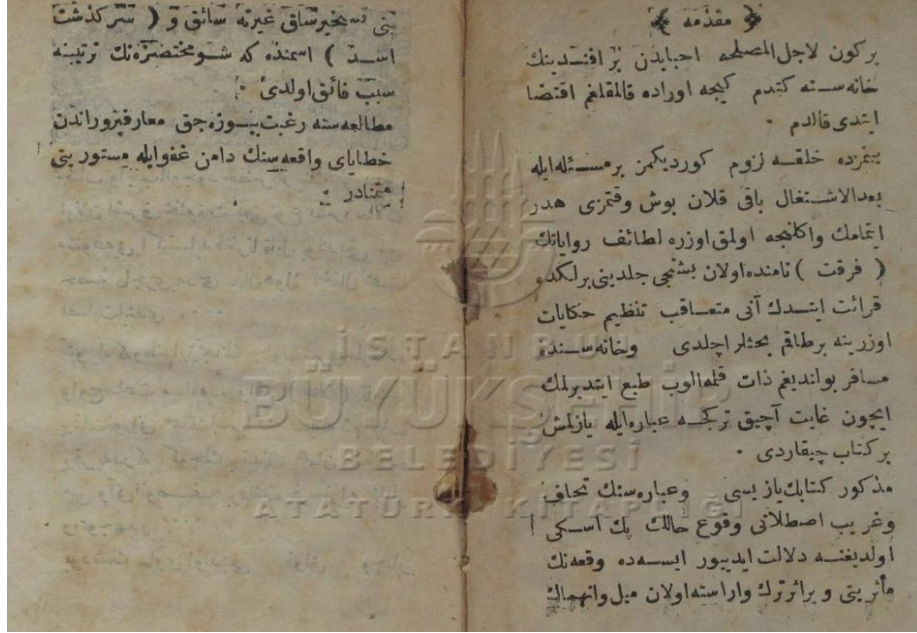 ﴿ مقدمه ﴾
بر كون لاجل المصلحه احبابدن بر افنديـنك
خانه سـنه كتدم كيجه اوراده قالمقلغم اقتضا
ايتدى قالدم ٠
بينمزده خلقـه لزوم كورديكمز بر مسـئله ايله
بعد الاشـتغال باقى قلان بوش وقتمزى هدر
ايتمامك واكلنجه اولمق اوزره لطائف رواياتك
( فرقت ) نامنده اولان بشنجى جلدينى برلكده
قرائت ايتـدك آنى متعـاقب تنظيم حكايات
اوزرينه برطاقم بحثلر آچلدى وخانه سـنده
مسافر بولنديغم ذات قلمه آلوب طبع ايتديرلمك
ايچون غايت آچيق تركجـه عباره ايله يازلمش
بر كتاب چيقاردى ٠
مذكور كتابك يازيسى وعباره سنك تحاف
وغريب اصطلاتى وقوع حالك پك اسـكى
اولديغنـه دلالت ايديبور ايسـه ده وقعه نك
مأثريتى و براثر ترك واراسته اولان ميل وانهماك
بنى تسخير ساق غيرته سائق و ( سركذشت
اسـد ) اسمنده كه شـو مختصرﮤنك ترتيبنه
سبب فائق اولدى ٠
مطالعه سنه رغبت بيـوره جق معارفپروراندن
خطاياى واقعه سنك دامن عفو ايله مستوريتى
متمنادر ٠
İSTANBUL
BÜYÜKŞEHİR
BELEDİYESİ
ATATÜRK KİTAPLIĞI